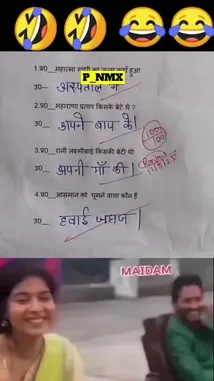 1.प्र0__महात्मा गांधी का जन्म कहाँ हुआ
P_NMX
30__ अस्पताल में
2.प्र0__महाराणा प्रताप किसके बेटे थे ?
30__ अपने बाप के।
100
100
3.प्र0__रानी लक्ष्मीबाई किसकी बेटी थी
30__ अपनी माँ की।
4.प्र0__आसमान को चूमने वाला कौन हैं
30__ हवाई जहाज।
MAIDAM